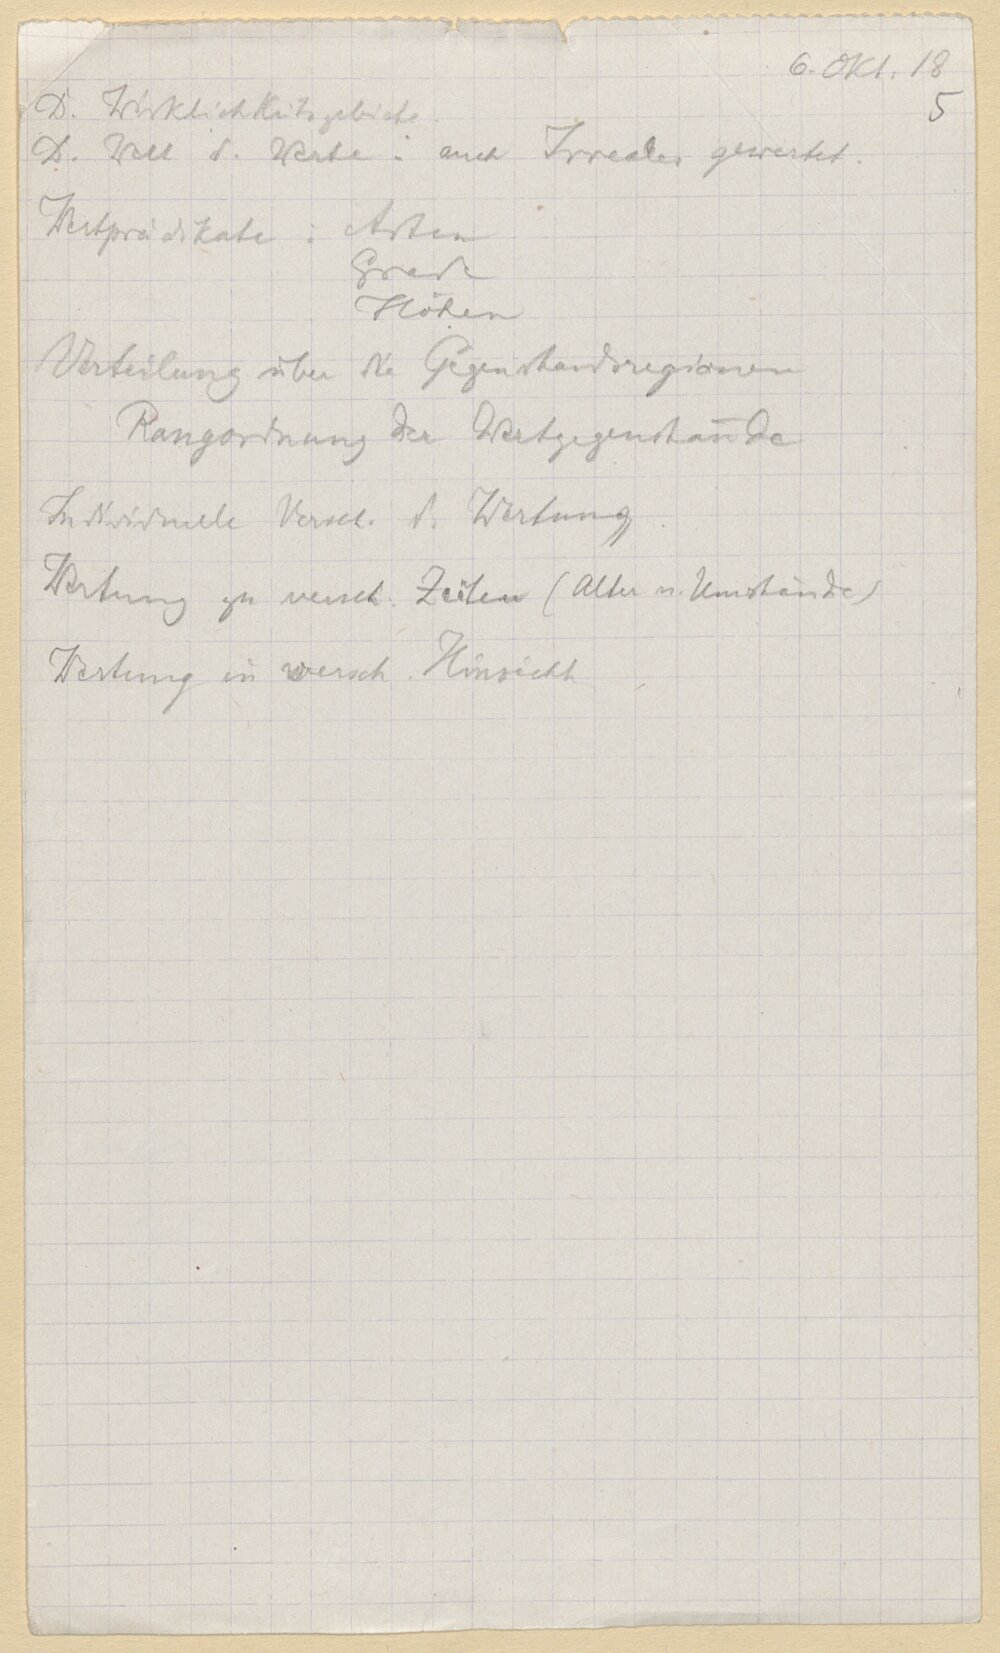 6. Okt. 18
5
D. Wirklichkeitsgebiete.
D. Welt d. Werte : auch Irreales gewertet.
Wertprädikate : Arten
Grade
Höhen
Verteilung über die Gegenstandsregionen
Rangordnung der Wertgegenstände
Individuelle Versch. d. Wertung.
Wertung zu versch. Zeiten (Alter u. Umstände)
Wertung in versch. Hinsicht